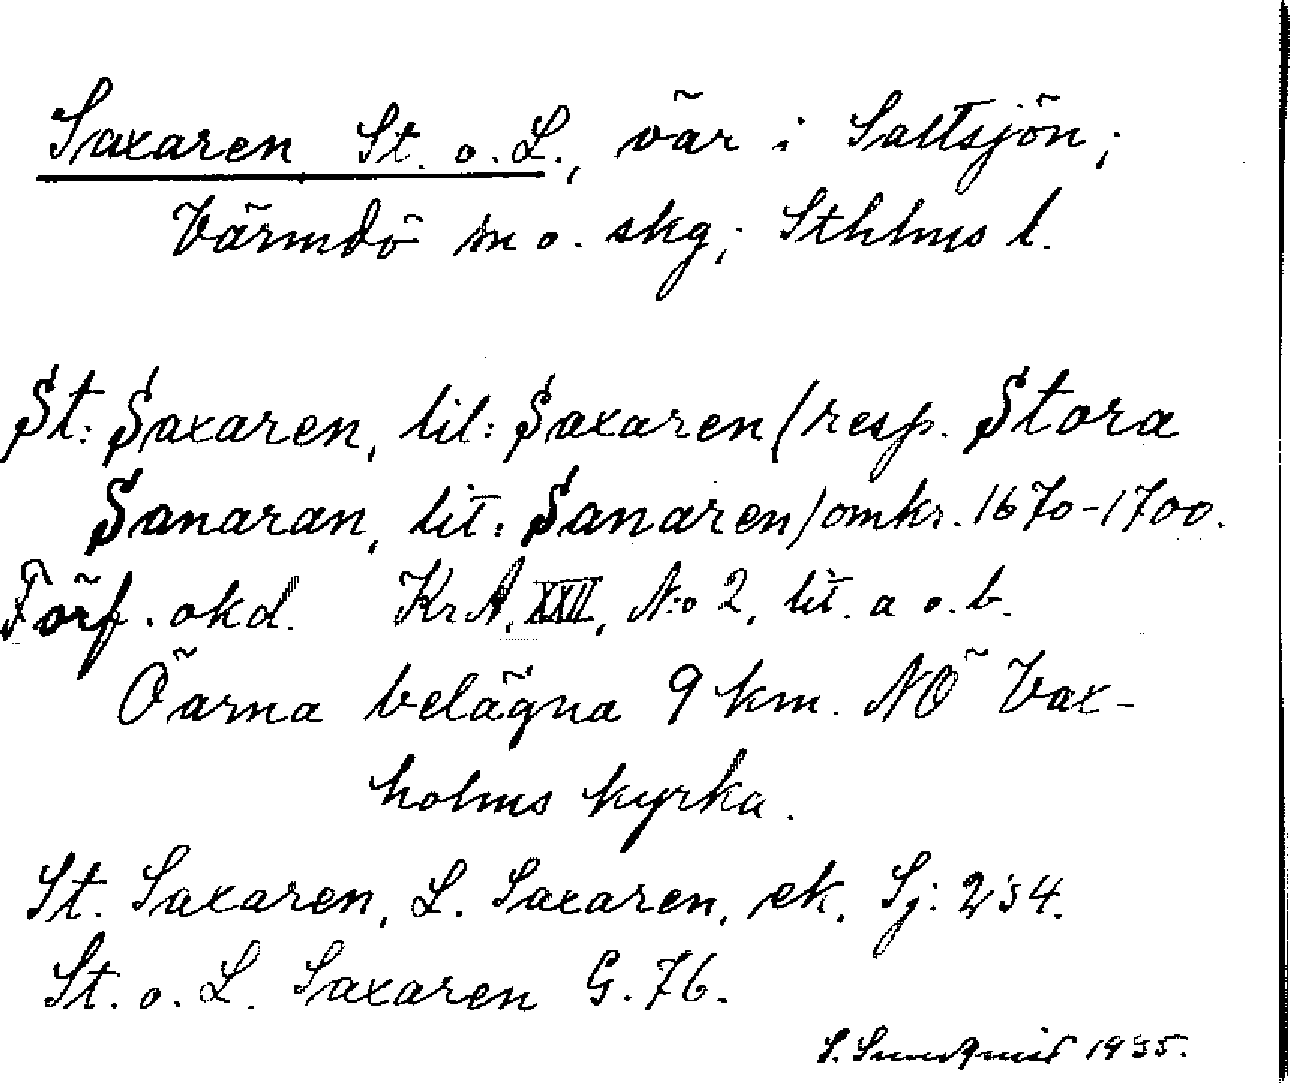 Saxaren St. o. L., öar i Saltsjön;
Värmdö in o. skg; Sthlms l.
St: Saxaren, lil: Saxaren (resp. Stora
Sanaran, lit: Sanaren) omkr. 1670-1700.
Förf. okd. KrA, XXII, N:o 2, lit. a o. b.
Öarna belägna 9 km. NÖ Vax-
holms kyrka.
St. Saxaren, L. Saxaren, ek. Sj: 234.
St. o. L. Saxaren G. 76.
S. Sundquist 1935.